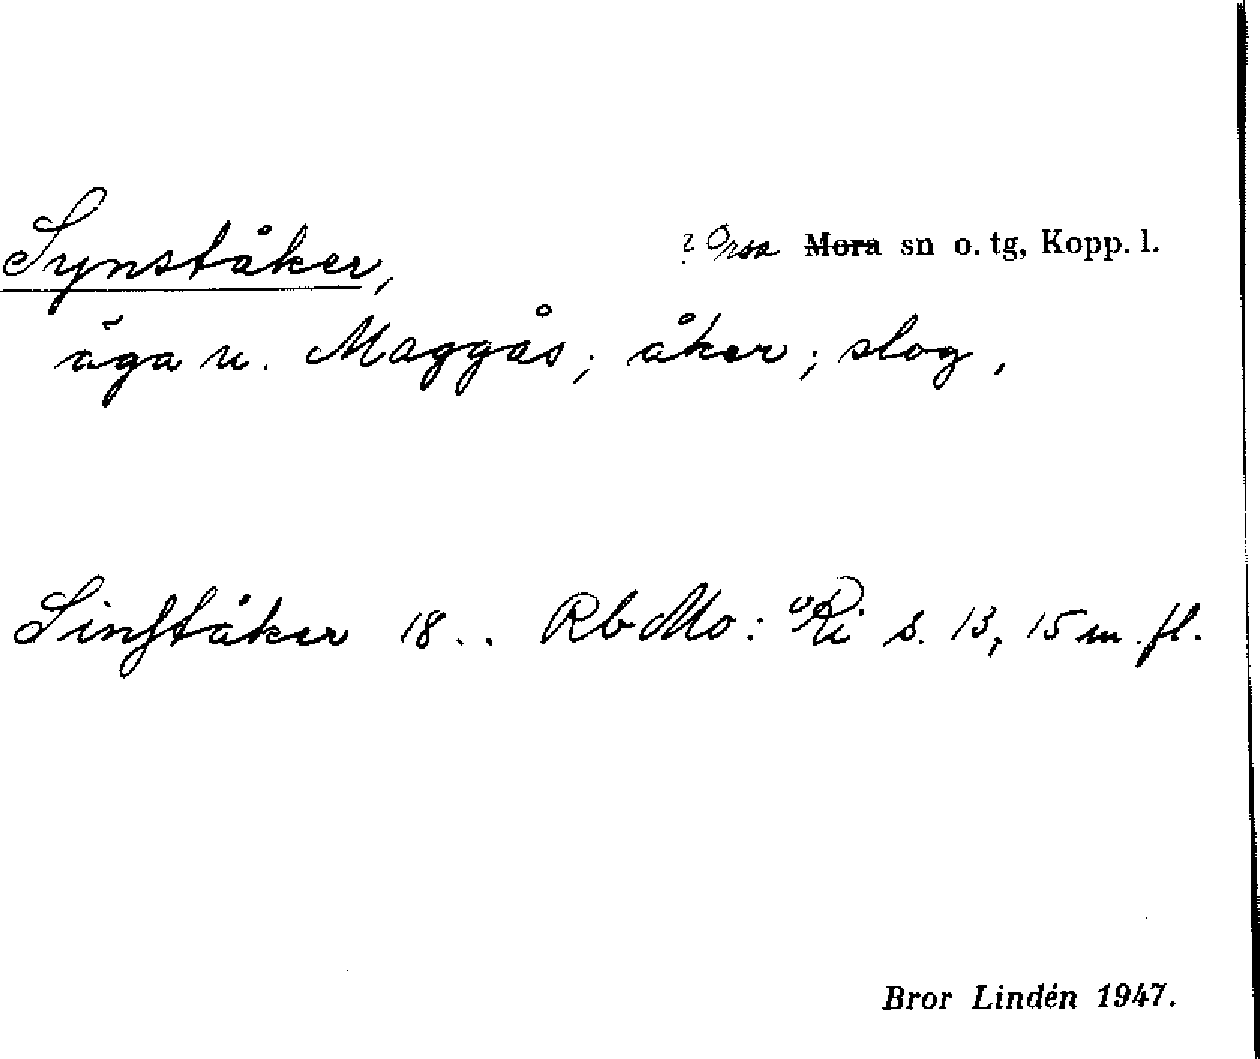 Synståker, ? Orsa Mora sn o. tg, Kopp. l.
äga u. Maggås; åker; slog,
Sinståker 18.. Rb Mo: Ri s. 13, 15 m. fl.
Bror Lindén 1947.